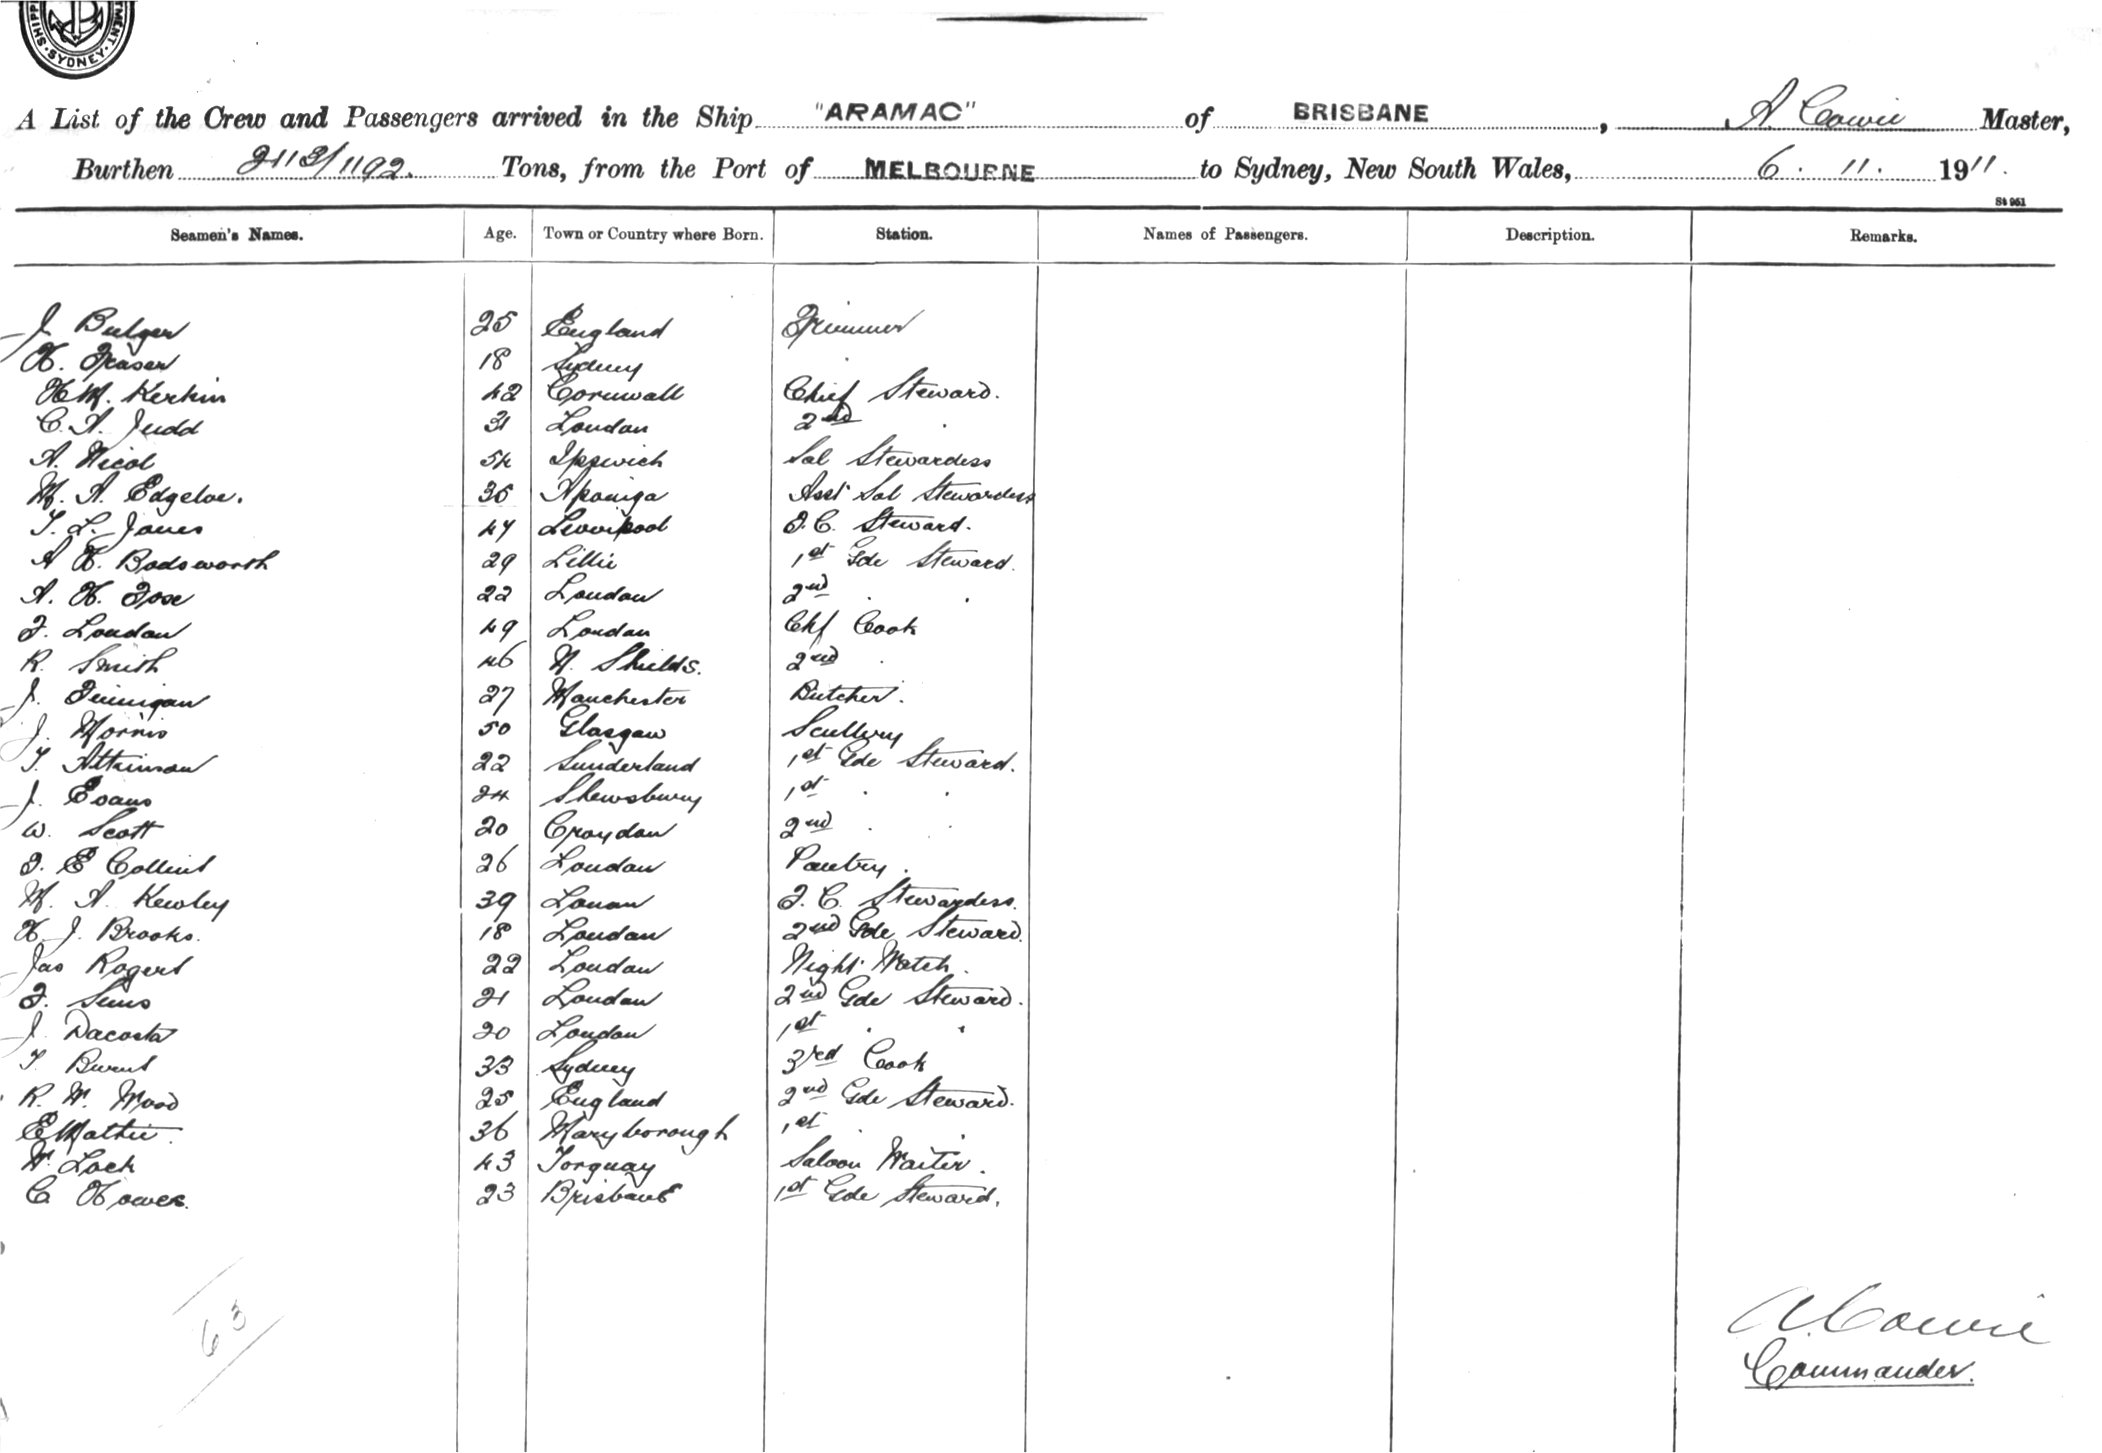 SHIPP TMENT · SYDNEY ·
A List of the Crew and Passengers arrived in the Ship "ARAMAC" of BRISBANE, A. Cowie Master,
Burthen 2113/1192. Tons, from the Port of MELBOURNE to Sydney, New South Wales, 6. 11. 1911.
St 961
Seamen's Names. Age. Town or Country where Born. Station. Names of Passengers. Description. Remarks.
J. Bulger 25 England Trimmer
H. Fraser 18 Sydney "
H M. Kerkin 42 Cornwall Chief Steward.
C. A. Judd 31 London 2nd "
A. Nicol 54 Ipswich Sal Stewardess
M. A. Edgeloe. 35 Asst Sal Stewardess
T. L. Jones 47 Liverpool F.C. Steward.
A H. Bodsworth 29 Lillie 1st Gde Steward.
A. H. Fose 22 London 2nd " "
F. London 49 London Chf Cook
R. Smith 46 N. Shields. 2nd "
J. Finnigan 27 Manchester Butcher.
J. Morris 50 Glasgow Scullery
T. Attkinson 22 Sunderland 1st Gde Steward.
J. Evans 24 Shewsbury 1st " "
W. Scott 20 Croydon 2nd " "
F. E Collins 26 London Pantry.
M. A Kewley 39 F. C. Stewardess.
H. J. Brooks. 18 London 2nd Gde Steward.
Jas Rogers 22 London Night Watch.
F. Sims 21 London 2nd Gde Steward.
J. Dacosta 20 London 1st " "
T Burns 33 Sydney 3rd Cook
R. W. Wood 25 England 2nd Gde Steward.
E Mathie. 36 Maryborough 1st " "
W. Lock 43 Torquay Saloon Waiter.
C. Howes. 23 Brisbane 1st Gde Steward.
63
A. Cowie
Commander.